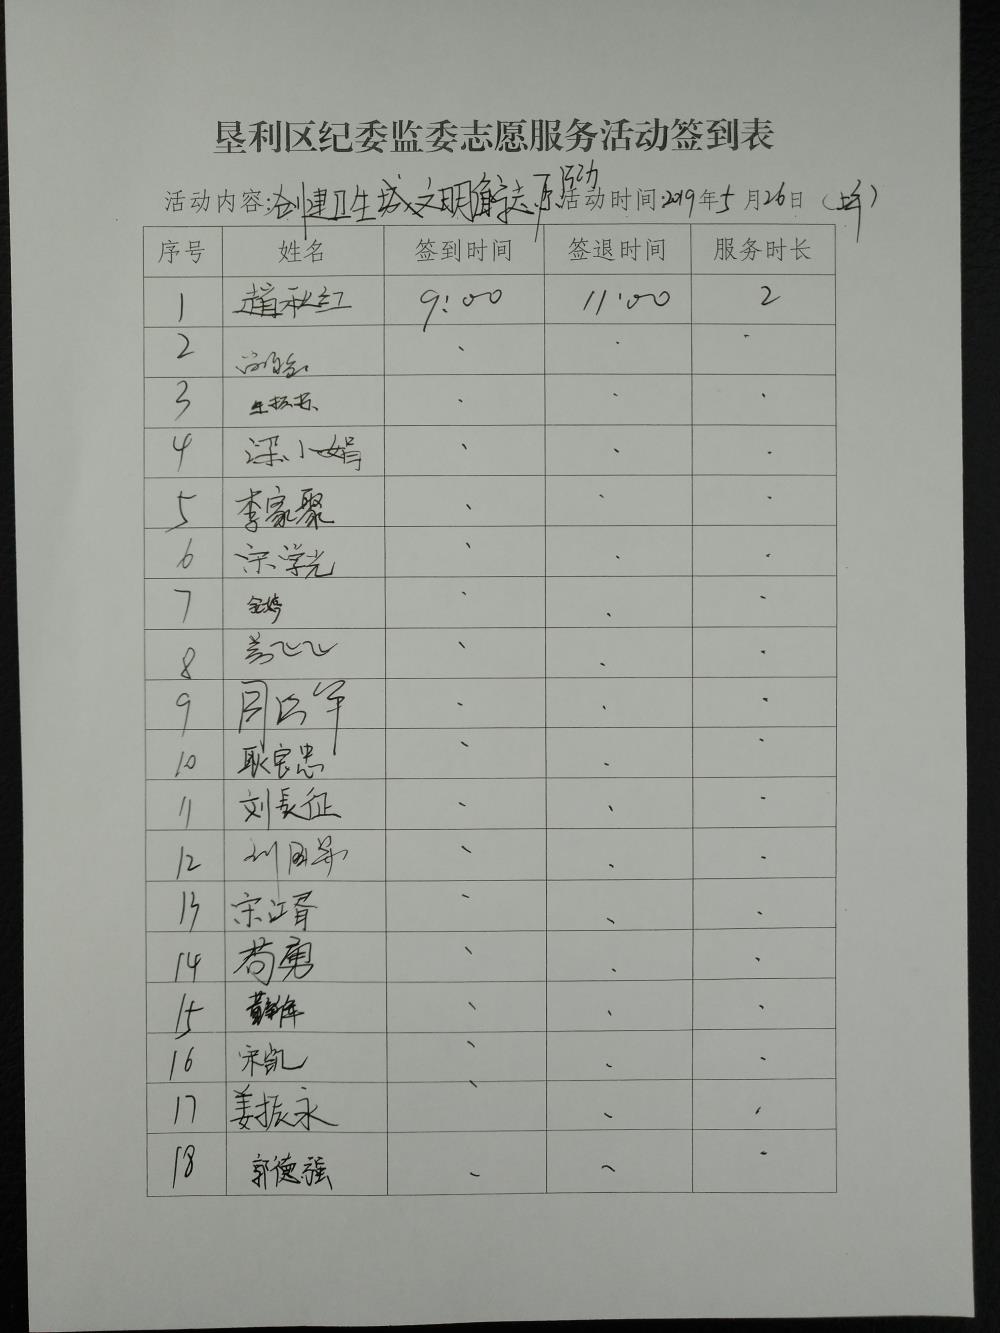 垦利区纪委监委志愿服务活动签到表
活动内容:创建卫生城文明 志愿活动 活动时间:2019年5月26日(上午)
序号 姓名 签到时间 签退时间 服务时长
1 赵秋红 9:00 11:00 2
2
3
4 梁小娟
5 李家聚
6 宋学光
7 金婷
8 飞飞
9 周
10 耿良忠
11 刘长征
12 刘国
13 宋江胥
14 苟勇
15 黄
16 宋凯
17 姜振永
18 郭德强